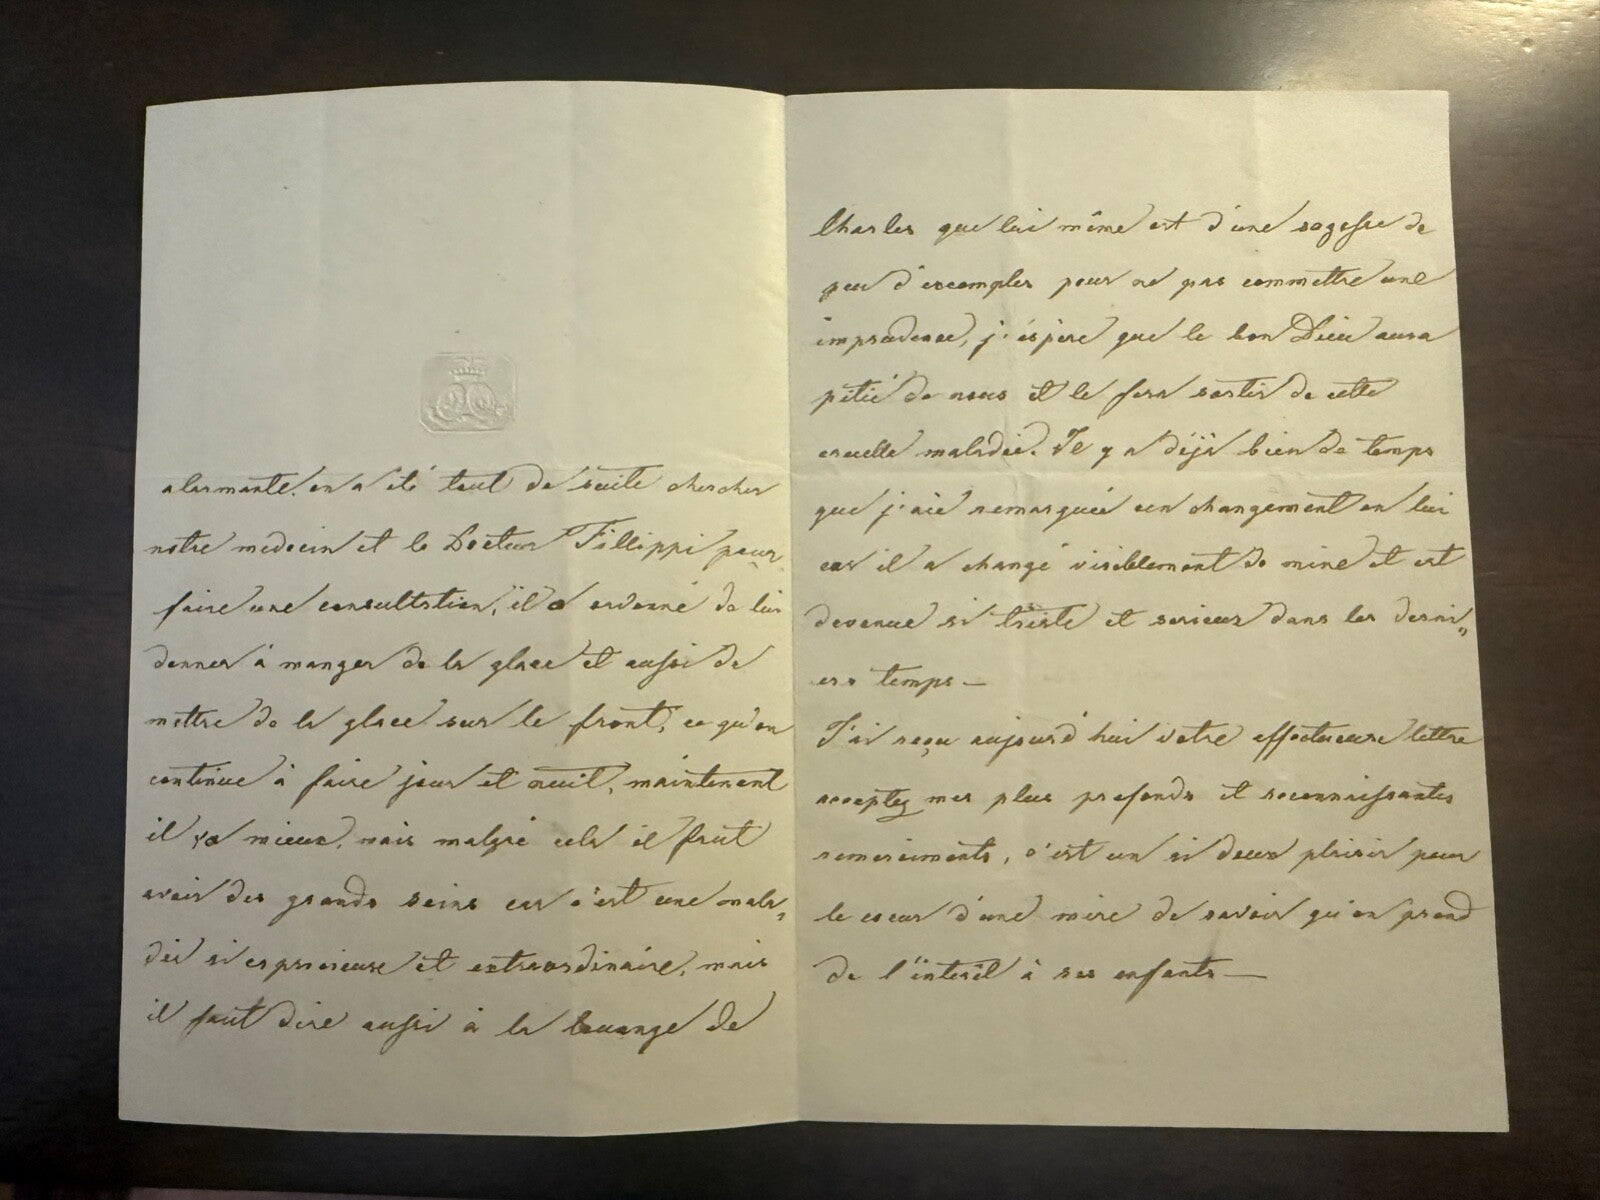 alarmante. on a été tout de suite chercher
notre medecin et le Docteur Fillippi pour
faire une consultstion, il a ordonné de lui
donner à manger de la glace et aussi de
mettre de la glace sur le front, ce qu'on
continue à faire jour et nuit, maintenent
il va mieux, mais malgré cela il faut
avoir des grands soins car c'est une mala„
die si capricieuse et extraordinaire, mais
il faut dire aussi à la louange de
Charles que lui même est d'une sagesse de
peu d'exemples pour ne pas commettre une
imprudence, j'éspere que le bon Dieu aura
pitié de nous et le fera sortir de cette
cruelle maladie. Il y a déjà bien de temps
que j'aie remarquée un changement en lui
car il a changé visiblement de mine et est
devenue si triste et serieux dans les derni„
ers temps —
J'ai reçu aujourd'hui votre affectueuse lettre
acceptez mes plus profonds et reconnaissantes
remerciments, c'est un si doux plaisir pour
le coeur d'une mère de savoir qu'on prend
de l'interêt à ses enfants —